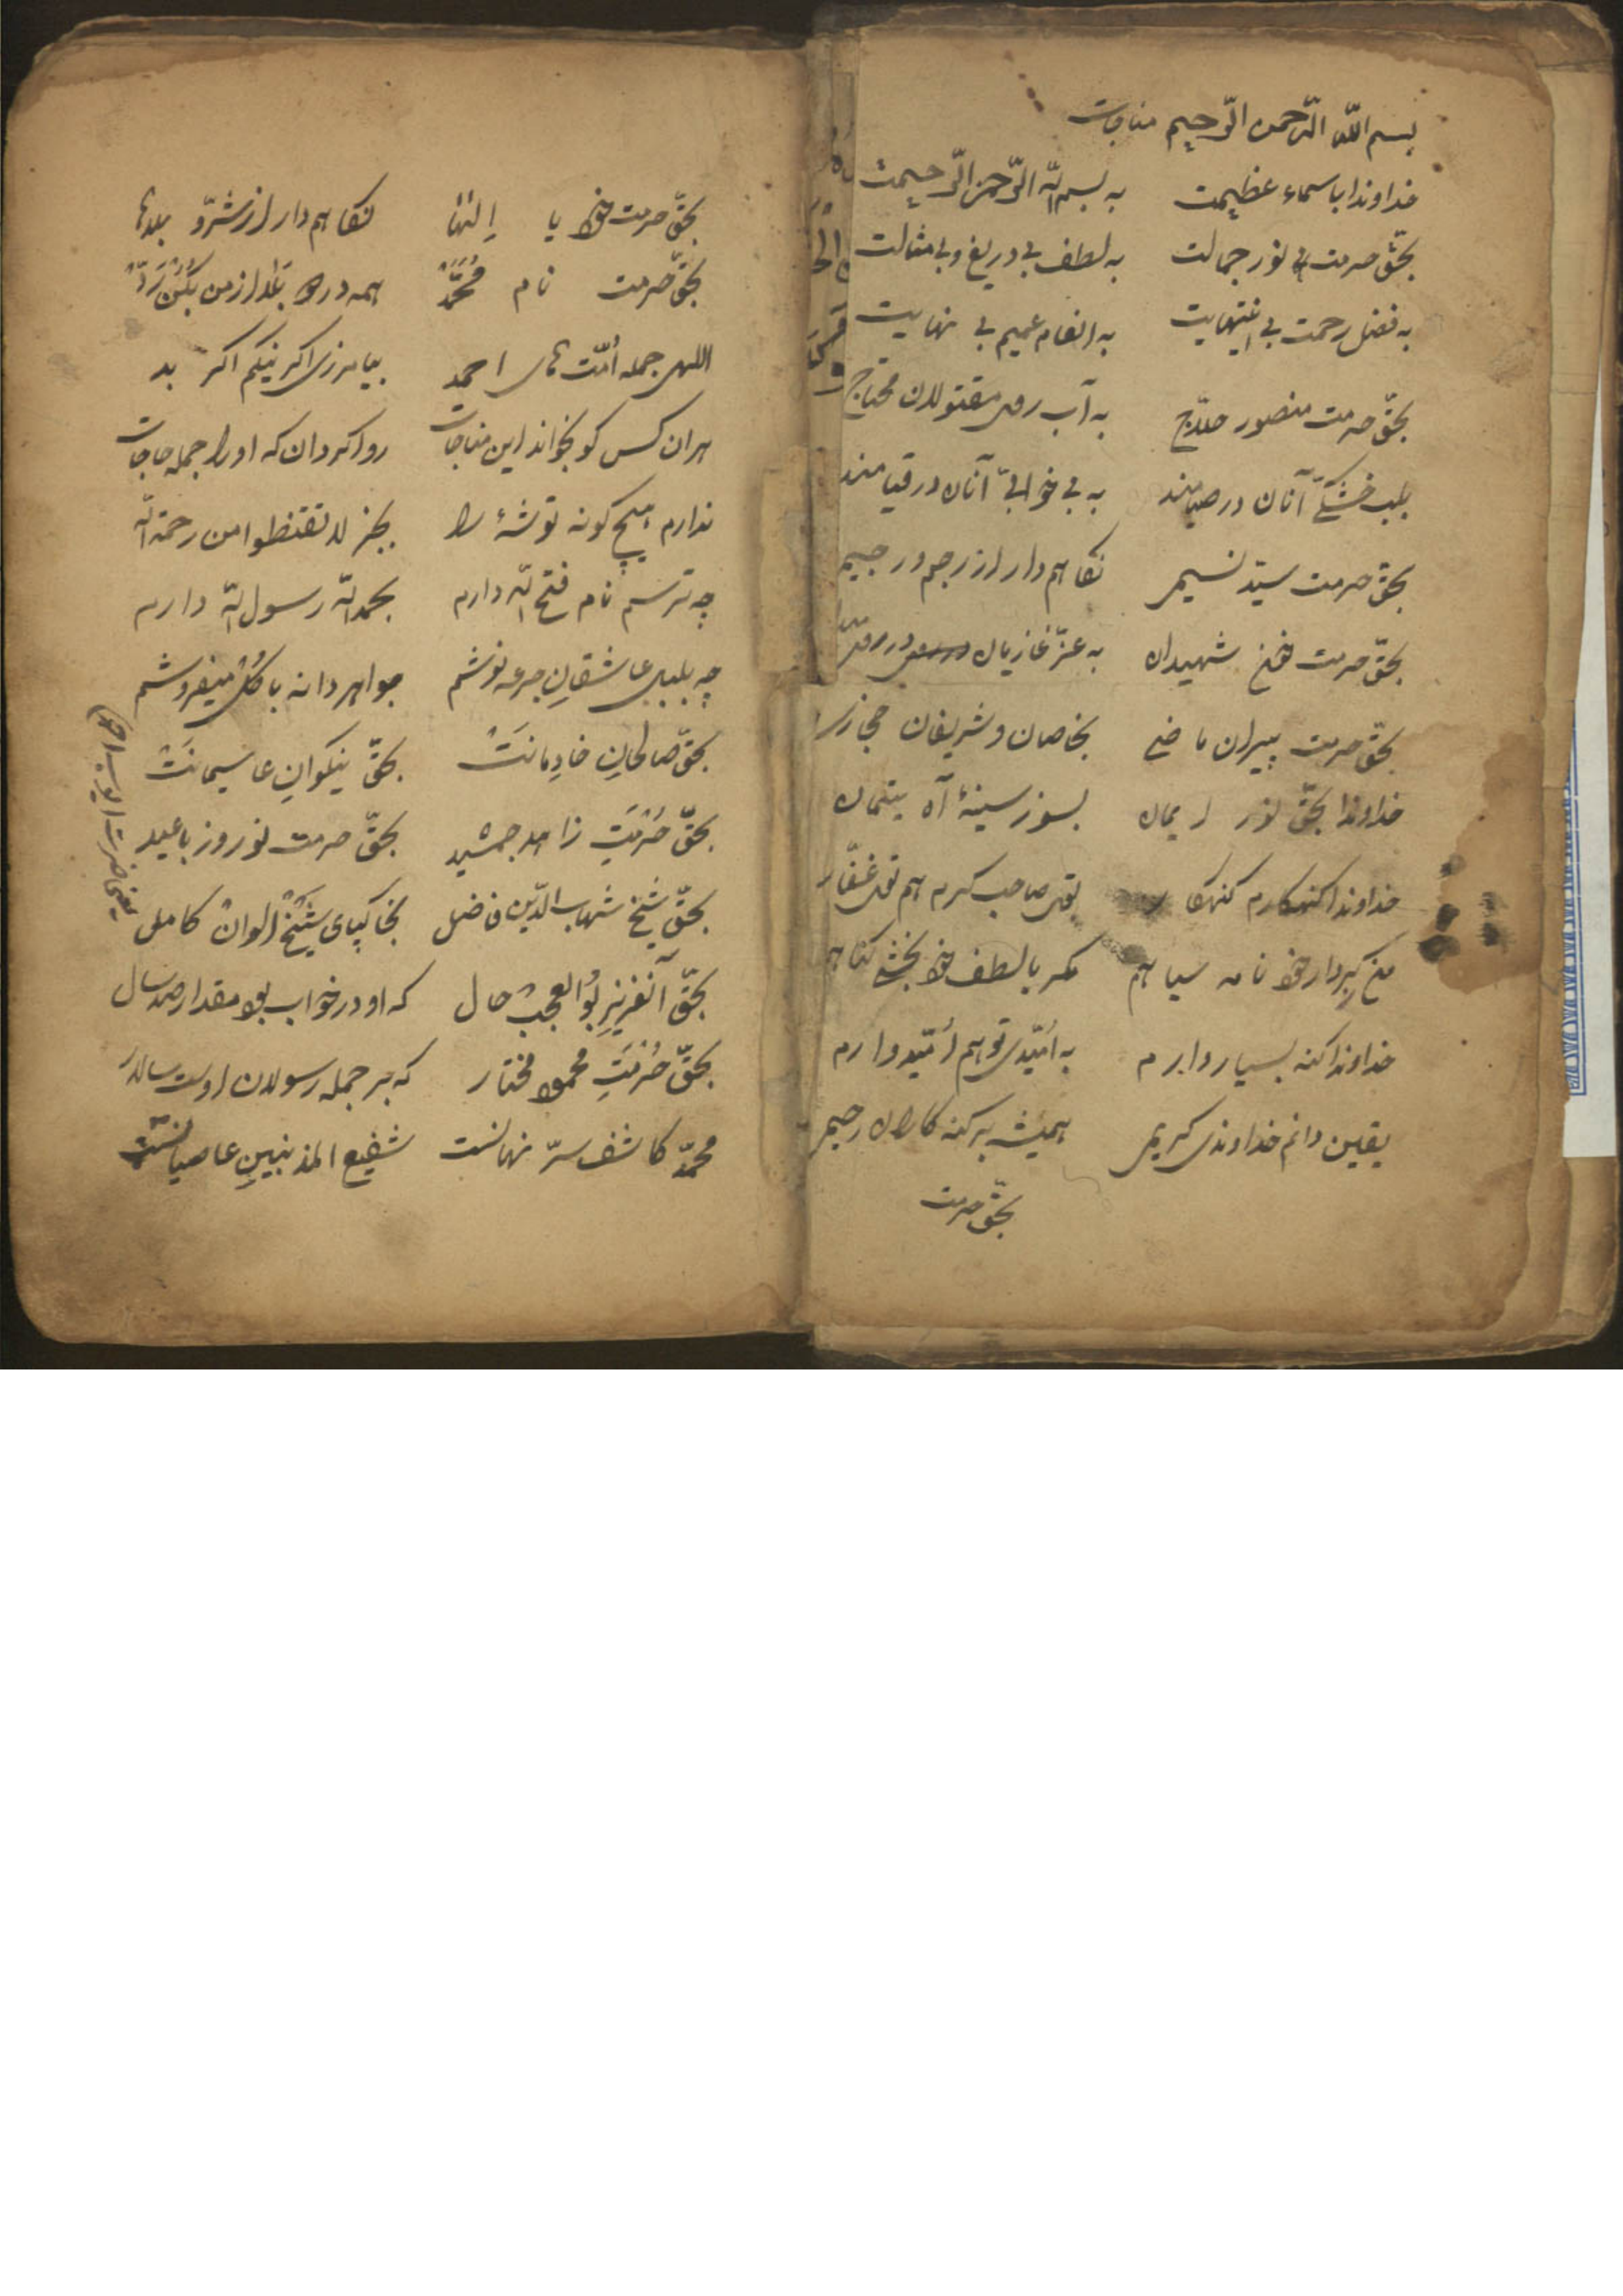 بسم الله الرّحمن الرّحيم مناجات
خداوندا باسماء عظیمت به بسم الله الرّحمن الرّحیمت
بحقّ حرمت نور جمالت به لطف بی دریغ و بی مثالت
به فضل رحمت بی انتهایت به انعام عمیم بی نهایت
بحقّ حرمت منصور حلاج به آب روی مقتولان محتاج
بلب خشکیّ آنان در صیامند به بی خوابیّ آنان در قیامند
بحق حرمت سیّد نسیمی نکاهم دار از رجم و رجیمی
بحقّ حرمت خون شهیدان به عزّ غازیان در
بحقّ حرمت پیران ماضی بخاصان و شریفان حجازی
خداوندا بحقّ نور ایمان بسوز سینهٔ آه یتیمان
خداوندا کنهکارم کنهکار توی صاحب کرم هم توی غفّار
من کردار خود نامه سیاهم مکر با لطف خود بخشی کناهم
خداوندا کنه بسیار دارم به امّیدی تو هم امّیدوارم
یقین دانم خداوندی کریمی همیشه برکنه کاران رحیمی
بحقّ حرمت
بحقّ حرمت خود یا الها نکاهم دار از شرّ و بلاها
بحقّ حرمت نام محمّد همه درد بلا از من بکن ردّ
اللهی جمله اُمّت های احمد بیامرزی اکر نیکم اکر بد
هران کس کو بخواند این مناجات روا کردان که او را جمله حاجات
ندارم هیچ کونه توشهٔ راه بجز لا تقنطوا من رحمة الله
چه ترسم نام فتح الله دارم بحمد الله رسول الله دارم
چه بلبل عاشقانِ جرعه نوشم جواهر دانه با کُل میفروشم
بحقّ صالحانِ خادِمانَتْ بحقّ نیکوانِ عاسیمانَتْ
بحقّ حُرْمَتِ زاهد جمشید بحقّ حرمت نوروز با عید
بحقّ شیخ شهاب الدّین فاضل بخاکپای شیخ الوان کامل
بحقّ آنعزیزِ بُو العجب حال که او در خواب بود مقدار صد سال
بحقّ حُرْمَتِ محمود مختار که بر جمله رسولان اوست سالار
محمّد کاشف سرّ نهانست شفیع المذنبینِ عاصیانست
یعنی حضرت ایوب